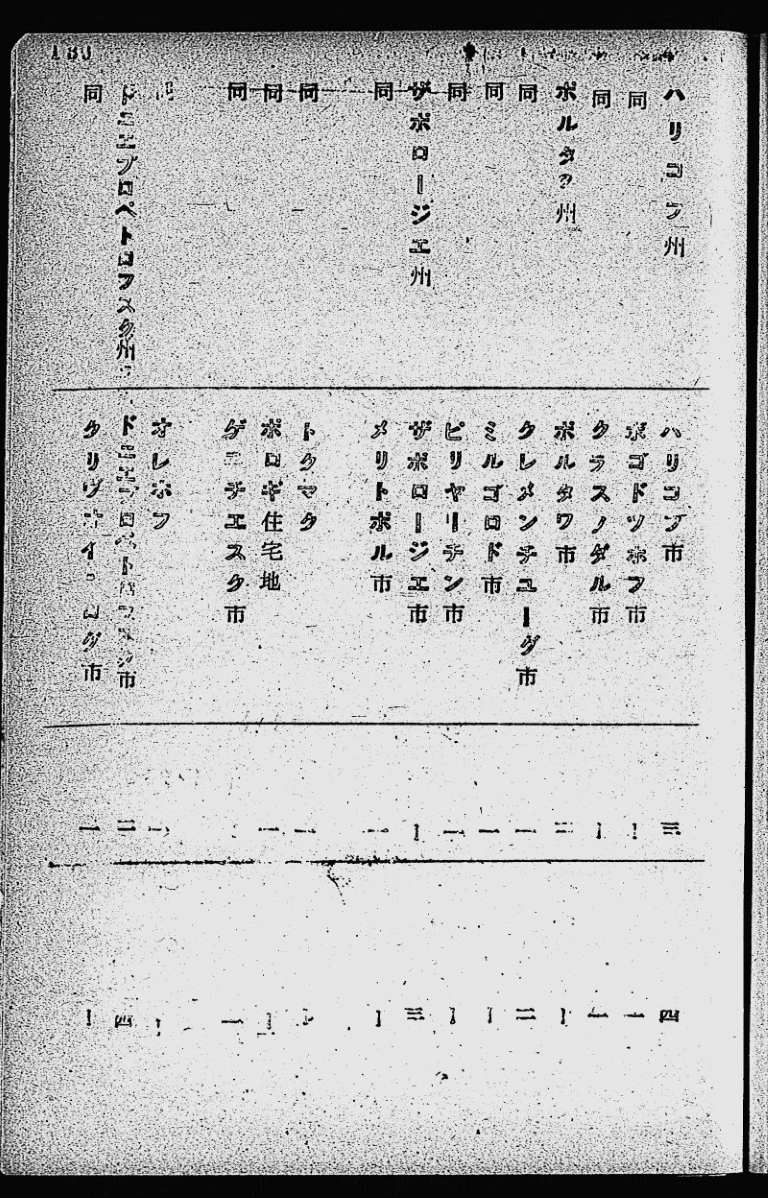 ハリコフ州 ハリコフ市 三 四
同 ボゴドツホフ市 一 一
同 クラスノダル市 一 一
ポルタワ州 ポルタワ市 二 一
同 クレメンチユーグ市 一 二
同 ミルゴロド市 一 一
同 ピリヤーチン市 一 一
ザポロージエ州 ザポロージエ市 一 三
同 メリトポル市 一 一
同 トクマク 一
同 ポロギ住宅地 一 一
同 ゲニチエスク市 一
オレホフ
ドニエプロペトロフスク州 ドニエプロペトロフスク市 二 四
同 市 一 一